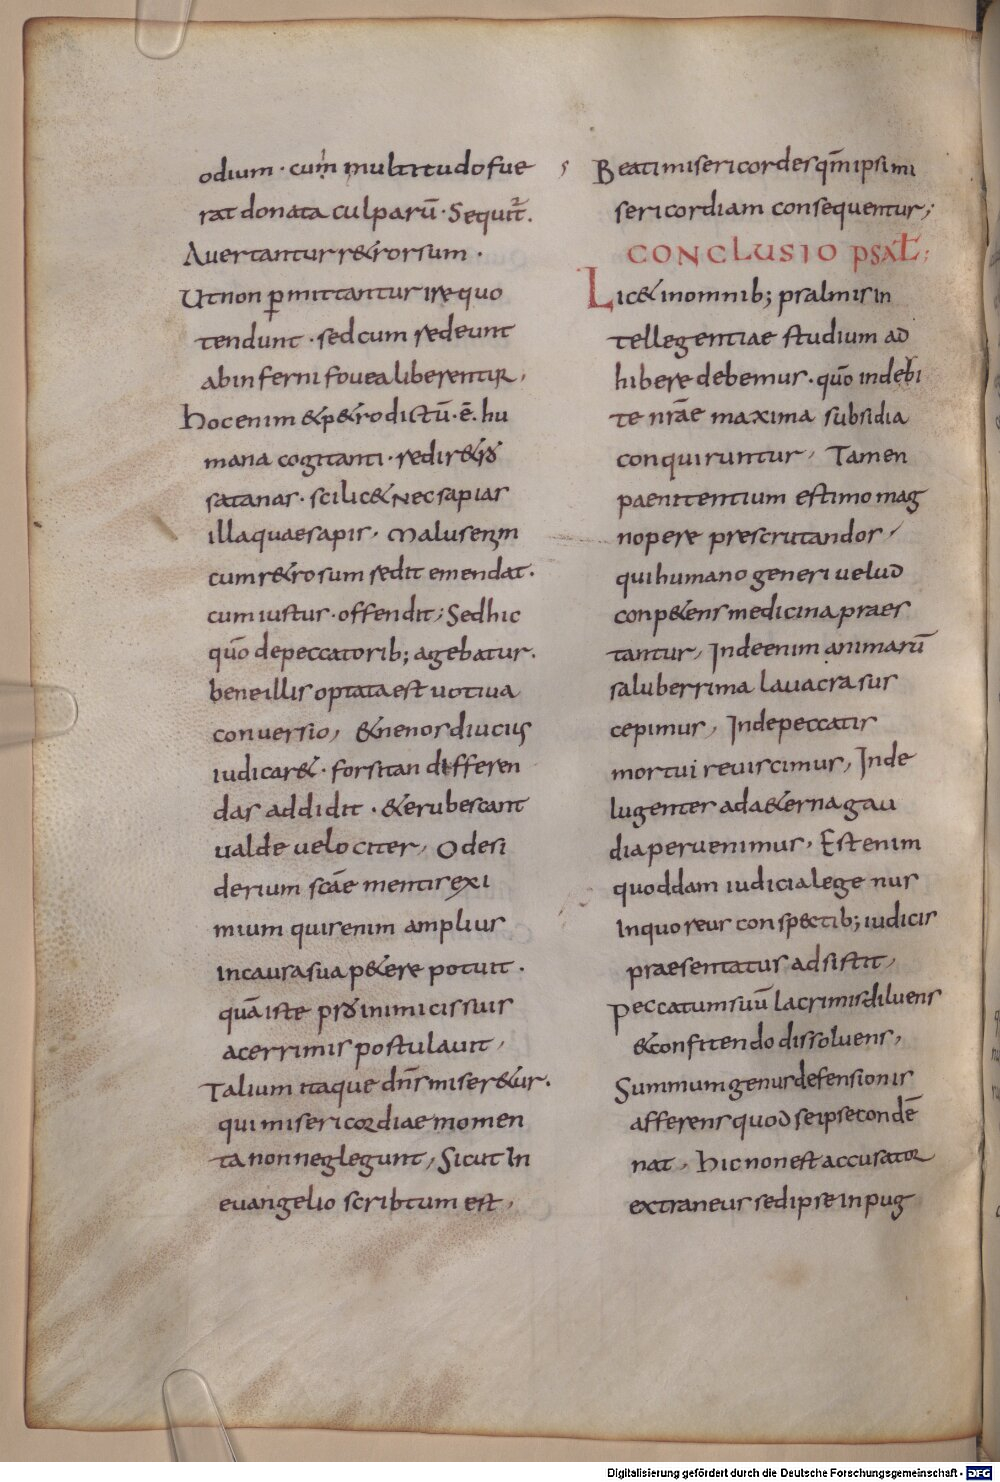 odium · cum multitudo fue
rat donata culparū · Sequit̄.
Avertantur r&rorsum ·
Ut non ꝑmittantur ire quo
tendunt · sed cum redeunt
ab inferni fovea liberentur,
hoc enim & p&ro dictū · ē. hu
mana cogitanti · redi r&ro
satanas · scilic& nec sapias
illa quae sapis · Malus enim
cum r&rosum redit emendat ·
cum iustus · offendit; Sed hic
qūo de peccatorib; agebatur.
bene illis optata est uotiua
conuersio, & ne nos diucius
iudicar& · forsitan differen
das addidit · & erubescant
ualde uelociter, O desi
derium scāe mentis exi
mium quis enim amplius
in causa sua p&ere potuit ·
quā iste pro inimicis suis
acerrimis postulauit,
Talium itaque dn̄s miser&ur.
qui misericordiae momen
ta non neglegunt, Sicut in
euangelio scribtum est,
Beati misericordes qm̄ ipsi mi
sericordiam consequentur;
CONCLUSIO PSAL̄;
Lic& in omnib; psalmis in
tellegentiae studium ad
hibere debemus · qūo inde ui
te nr̄ae maxima subsidia
conquiruntur, Tamen
paenitentium estimo mag
nopere prescrutandos,
qui humano generi uelud
conp&ens medicina praes
tantur, Inde enim animarū
saluberrima lauacra sus
cepimus, Inde peccatis
mortui reuiscimus, Inde
lugentes ad a&erna gau
dia peruenimus, Est enim
quoddam iudicialege nus
In quo reus conspectib; iudicis
praesentatus adsistit,
Peccatum suū lacrimis diluens
& confitendo dissoluens,
Summum genus defensionis
afferens quod se ipse condē
nat, hic non est accusator
extraneus sed ipse inpug
Digitalisierung gefördert durch die Deutsche Forschungsgemeinschaft - DFG